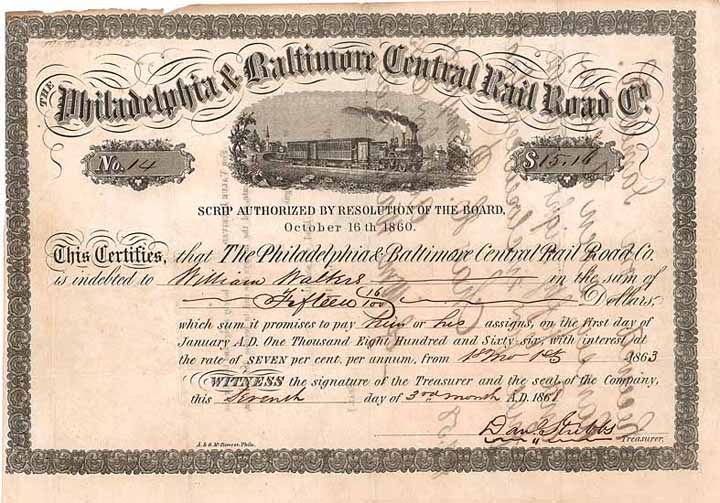 THE
Philadelphia & Baltimore Central Rail Road Co.
No. 14
$15.16
SCRIP AUTHORIZED BY RESOLUTION OF THE BOARD,
October 16th 1860.
This Certifies, that The Philadelphia & Baltimore Central Rail Road Co.
is indebted to William Walker in the sum of
Fifteen 16/100 Dollars,
which sum it promises to pay him or his assigns, on the first day of
January A.D. One Thousand Eight Hundred and Sixty six, with interest at
the rate of SEVEN per cent. per annum, from 1st Mo 1st 1863
WITNESS the signature of the Treasurer and the seal of the Company,
this Seventh day of 3rd month A.D. 1861
Danl Stubbs
Treasurer.